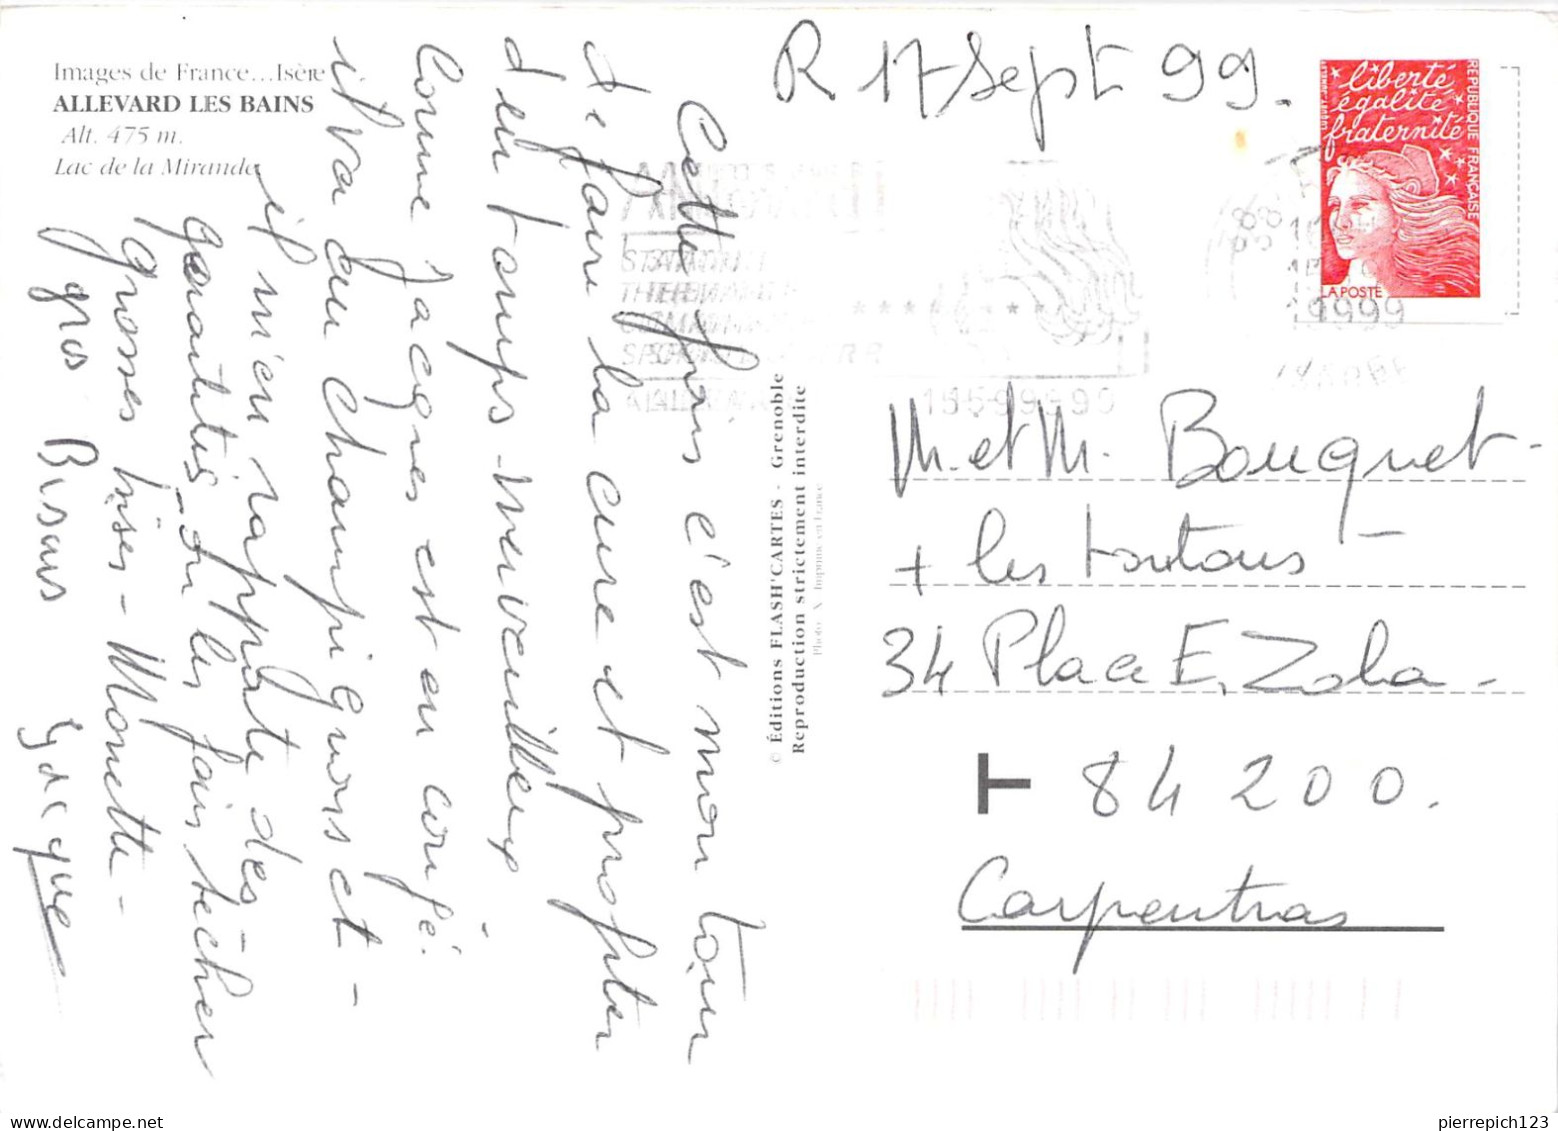 Images de France...Isère
ALLEVARD LES BAINS
Alt. 475 m.
Lac de la Mirande
R 17 Sept 99.
liberté
égalité
fraternité
REPUBLIQUE FRANÇAISE
LA POSTE
Cette fois c'est mon tour
de faire la cure et profiter
d'un temps merveilleux
Comme Jacques est en congé.
il va au champignons et -
il m'en rapporte des
quantités. On les fais sécher
grosses bises - Monette -
gros Bisous Jacques
© Éditions FLASH'CARTES - Grenoble
Reproduction strictement interdite
Photo : X Imprimé en France
M. et M. Bouquet -
+ les toutous -
34 Place E. Zola -
T 84 200.
Carpentras
pierrepich123